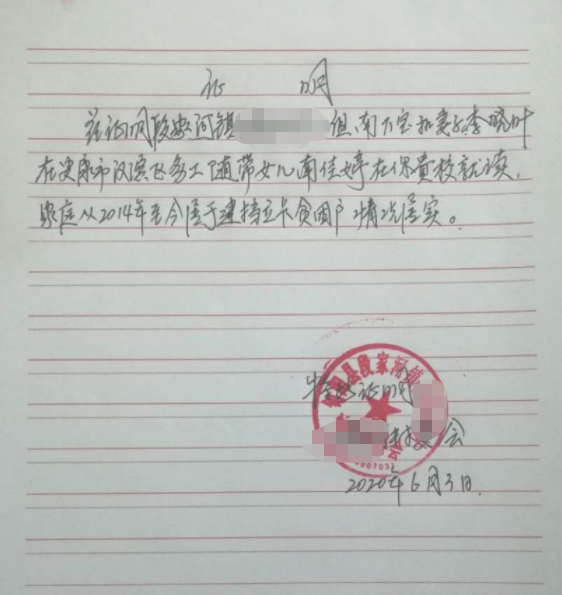 证 明
兹证明段家河镇 但南下宝和妻子李晓叶
在安康市汉滨区务工随带女儿南佳婷在保育校就读,
家庭从2014年至今属于建档立卡贫困户情况属实。
段家河镇
特此证明
村委会
2020年6月3日